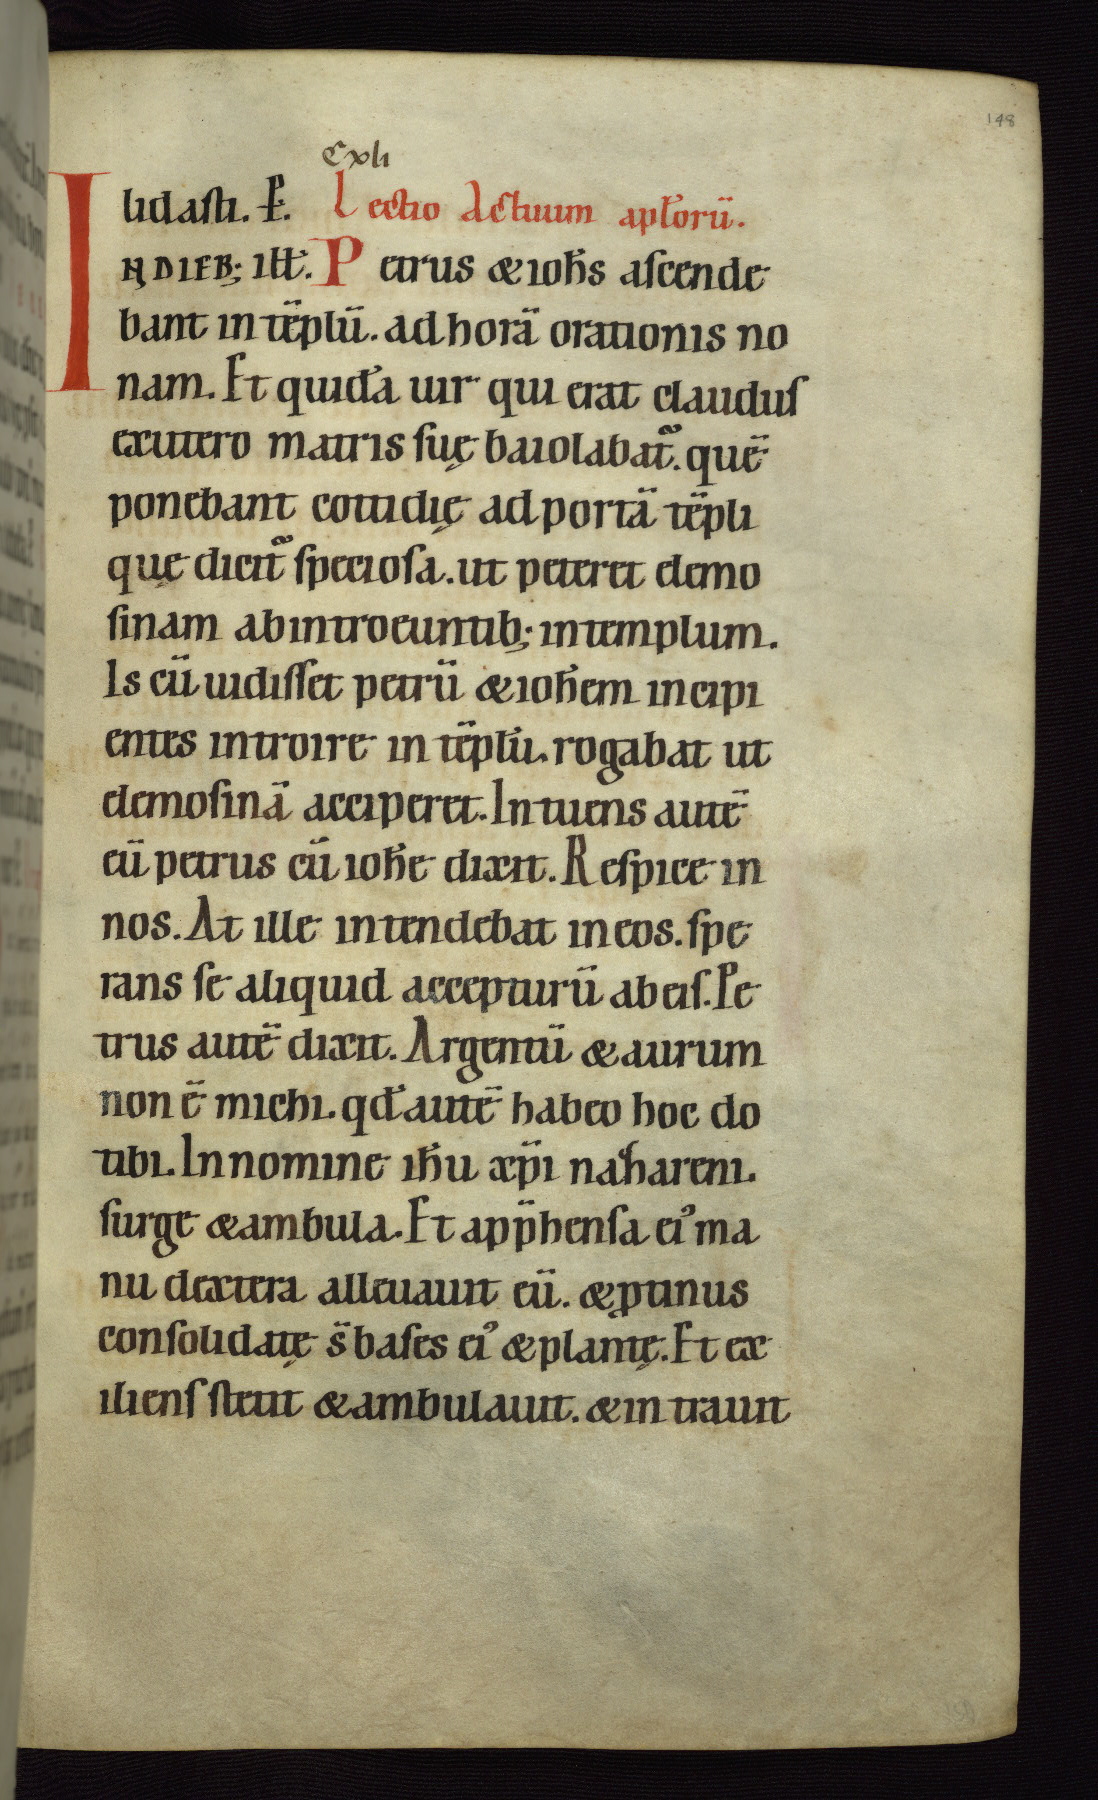 148
Cxli
lidasti. P̶. Lectio Actuum apl̃orũ.
IN DIEB; ill̃. Petrus & ioh̃s ascende
bant in tẽplũ. ad horã orationis no
nam. Et quidã uir qui erat claudus
exutero matris suę baiolabat̃. quẽ
ponebant cottidię ad portã tẽpli
quę dicit̃ speciosa. ut peteret elemo
sinam ab introeuntib; in templum.
Is cũ uidisset petrũ & ioh̃em incipi
entes introire in tẽplũ. rogabat ut
elemosinã acciperet. Intuens autẽ
eũ petrus cũ ioh̃e dixit. Respice in
nos. At ille intendebat in eos. spe
rans se aliquid accepturũ ab eis. Pe
trus autẽ dixit. Argentũ & aurum
non ẽ michi. qd̃ autẽ habeo hoc do
tibi. In nomine ih̃u xp̃i naȝareni.
surge & ambula. Et app̃hensa ei᾽ ma
nu dextera alleuauit eũ. & ꝓtinus
consolidatę s̃ bases ei᾽ & plantę. Et ex
iliens stetit & ambulauit. & intrauit